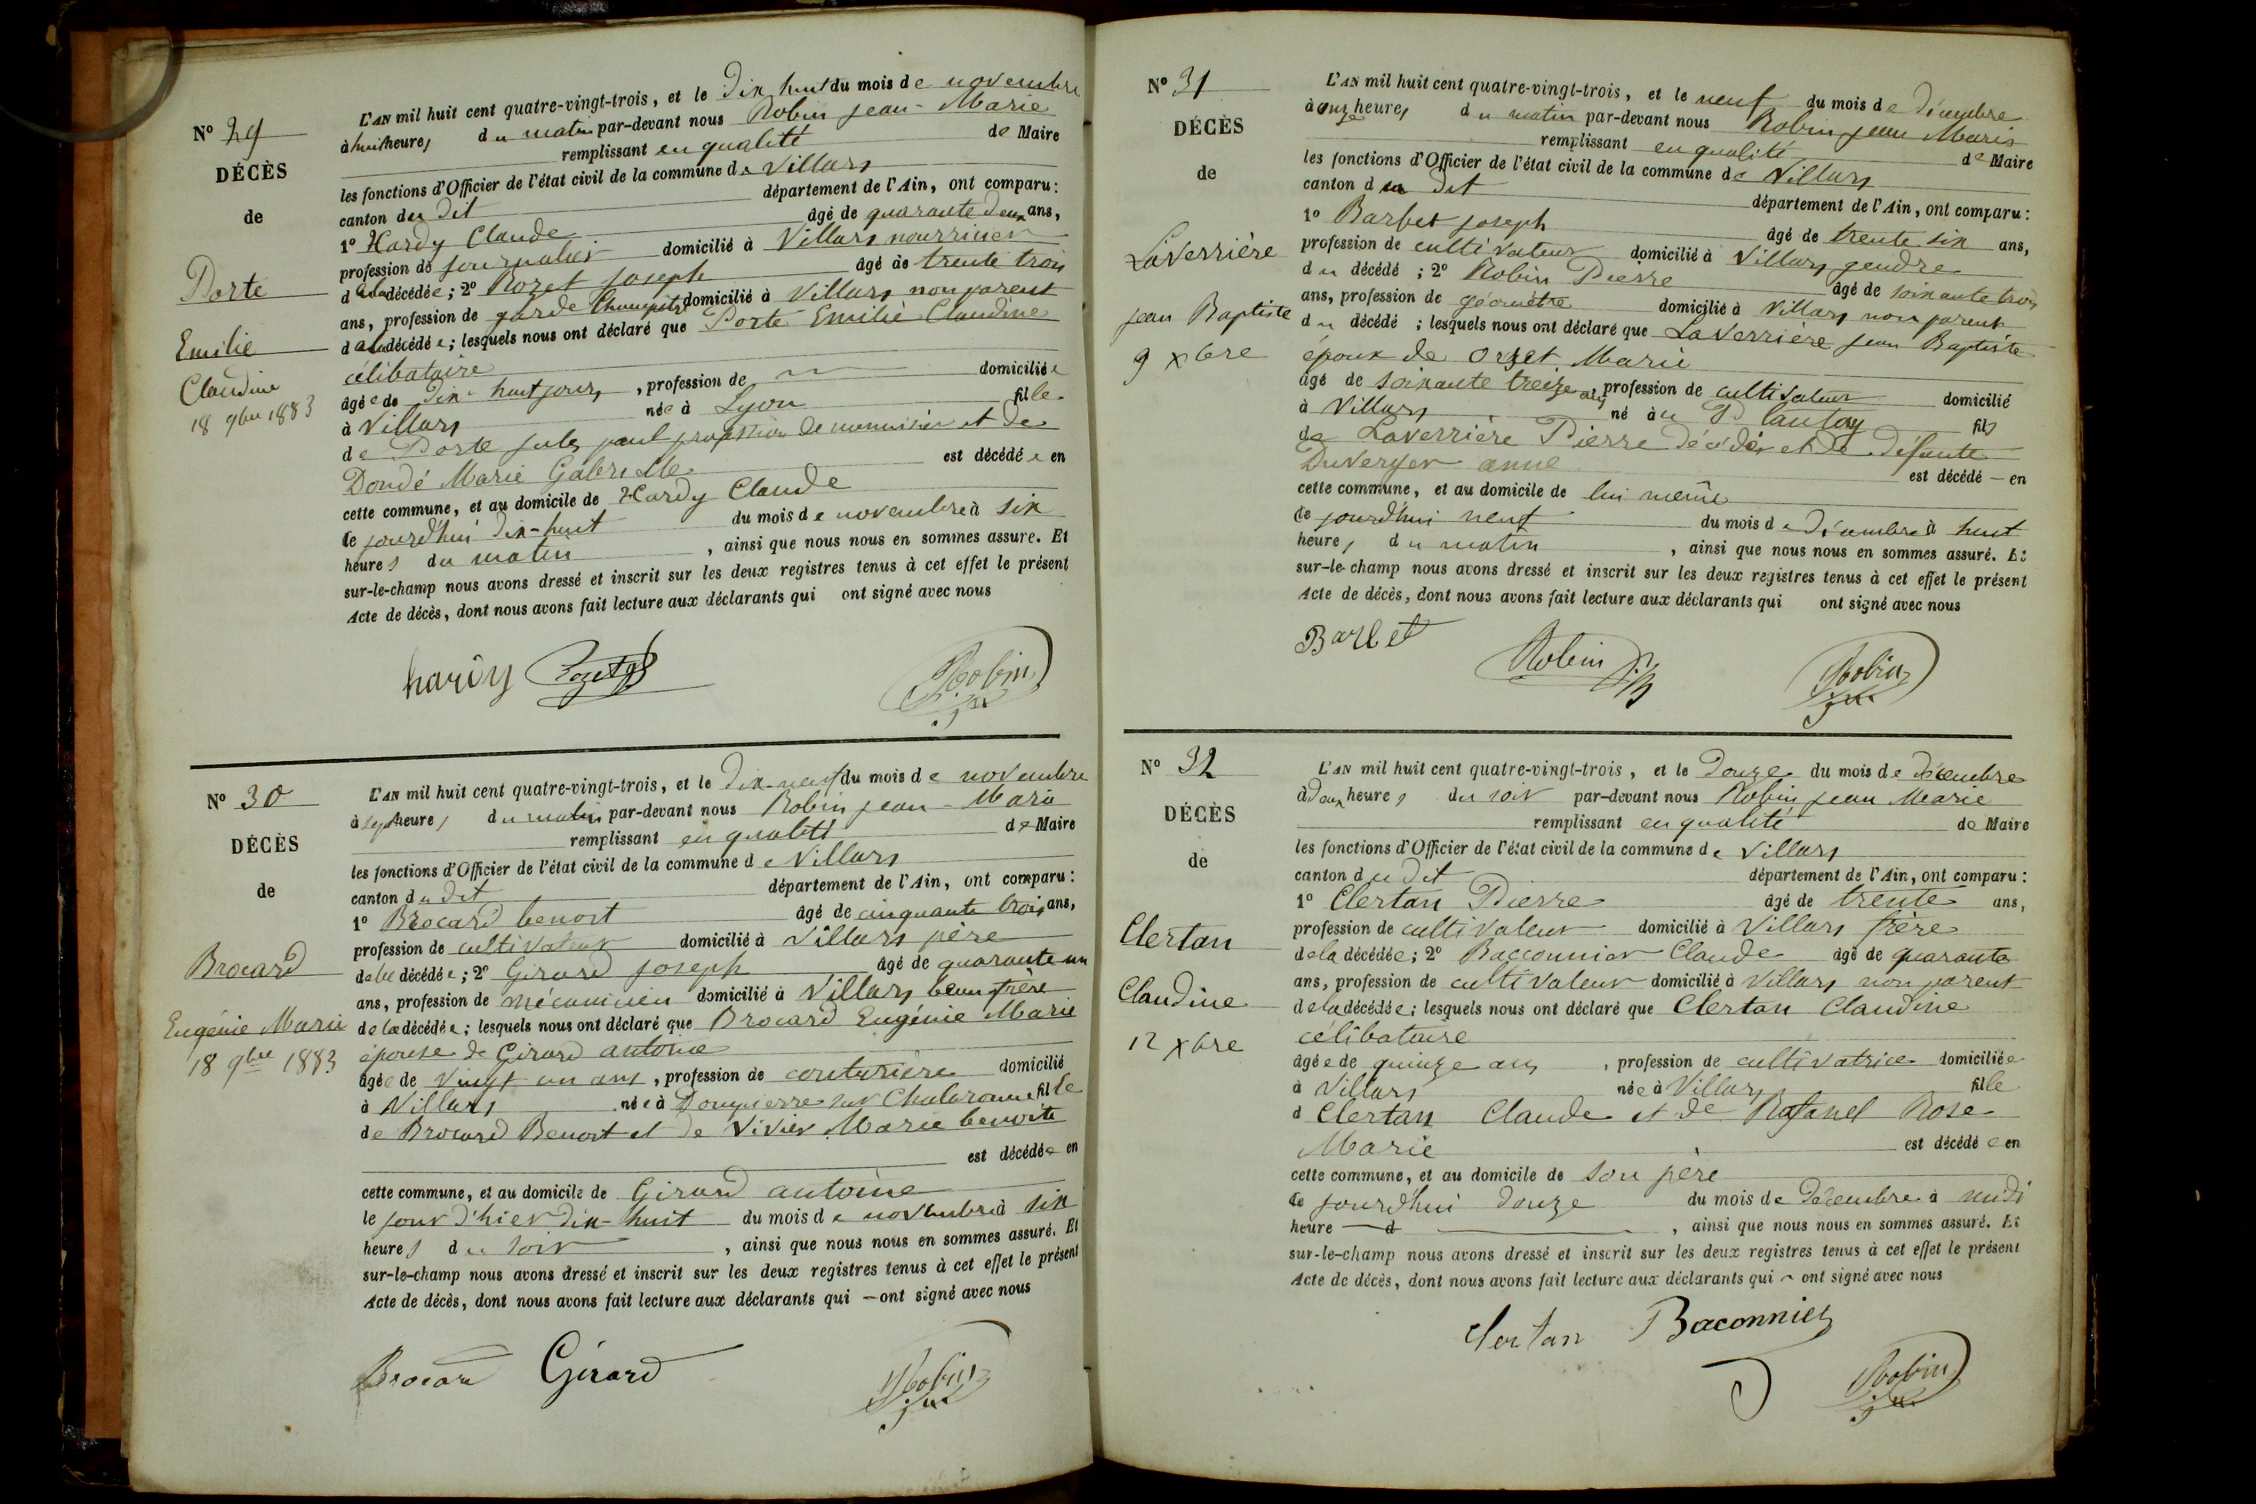 N° 29
DÉCÈS
de
Porte
Emilie
Claudine
18 9bre 1883
L'AN mil huit cent quatre-vingt-trois, et le dix huit du mois de novembre
à huit heures du matin par-devant nous Robin jean-Marie
remplissant en qualité de Maire
les fonctions d'Officier de l'état civil de la commune de Villars
canton du dit département de l'Ain, ont comparu :
1° Hardy Claude âgé de quarante deux ans,
profession de journalier domicilié à Villars nourricier
de la décédée ; 2° Rozet joseph âgé de trente trois
ans, profession de garde Champêtre domicilié à Villars non parent
de la décédée ; lesquels nous ont déclaré que Porte Emilie Claudine
célibataire
âgée de dix-huit jours, profession de domiciliée
à Villars née à Lyon fille
de Porte jules paul profession de menuisier et de
Dondé Marie Gabrielle est décédée en
cette commune, et au domicile de Hardy Claude
ce jourd'hui dix-huit du mois de novembre à six
heures du matin, ainsi que nous nous en sommes assuré. Et
sur-le-champ nous avons dressé et inscrit sur les deux registres tenus à cet effet le présent
Acte de décès, dont nous avons fait lecture aux déclarants qui ont signé avec nous
hardy Rozet Robin
N° 30
DÉCÈS
de
Brocard
Eugénie Marie
18 9bre 1883
L'AN mil huit cent quatre-vingt-trois, et le dix-neuf du mois de novembre
à sept heures du matin par-devant nous Robin jean-Marie
remplissant en qualité de Maire
les fonctions d'Officier de l'état civil de la commune de Villars
canton du dit département de l'Ain, ont comparu :
1° Brocard benoit âgé de cinquante trois ans,
profession de cultivateur domicilié à Villars père
de la décédée ; 2° Girard joseph âgé de quarante un
ans, profession de mécanicien domicilié à Villars beau frère
de la décédée ; lesquels nous ont déclaré que Brocard Eugénie Marie
épouse de Girard antoine
âgée de vingt un ans, profession de couturière domicilié
à Villars née à Dompierre sur Chalaronne fille
de Brocard Benoit et de Vivier Marie benoite
est décédée en
cette commune, et au domicile de Girard antoine
le jour d'hier dix-huit du mois de novembre à six
heures du soir, ainsi que nous nous en sommes assuré. Et
sur-le-champ nous avons dressé et inscrit sur les deux registres tenus à cet effet le présent
Acte de décès, dont nous avons fait lecture aux déclarants qui — ont signé avec nous
Brocard Girard Robin
N° 31
DÉCÈS
de
Laverrière
jean Baptiste
9 xbre
L'AN mil huit cent quatre-vingt-trois, et le neuf du mois de Décembre
à onze heures du matin par-devant nous Robin jean Marie
remplissant en qualité de Maire
les fonctions d'Officier de l'état civil de la commune de Villars
canton du dit département de l'Ain, ont comparu :
1° Barbet joseph âgé de trente six ans,
profession de cultivateur domicilié à Villars gendre
du décédé ; 2° Robin Pierre âgé de soixante trois
ans, profession de géomètre domicilié à Villars non parent
du décédé ; lesquels nous ont déclaré que Laverrière jean Baptiste
époux de Orset Marie
âgé de soixante treize ans, profession de cultivateur domicilié
à Villars né au Plantay fils
de Laverrière Pierre décédé et de défunte
Duverger anne est décédé — en
cette commune, et au domicile de lui même
ce jourd'hui neuf du mois de Décembre à huit
heures du matin, ainsi que nous nous en sommes assuré. Et
sur-le-champ nous avons dressé et inscrit sur les deux registres tenus à cet effet le présent
Acte de décès, dont nous avons fait lecture aux déclarants qui ont signé avec nous
Barbet Robin Robin
N° 32
DÉCÈS
de
Clertan
Claudine
12 xbre
L'AN mil huit cent quatre-vingt-trois, et le Douze du mois de décembre
à deux heures du soir par-devant nous Robin jean Marie
remplissant en qualité de Maire
les fonctions d'Officier de l'état civil de la commune de Villars
canton du dit département de l'Ain, ont comparu :
1° Clertan Pierre âgé de trente ans,
profession de cultivateur domicilié à Villars frère
de la décédée ; 2° Bacconnier Claude âgé de quarante
ans, profession de cultivateur domicilié à Villars non parent
de la décédée ; lesquels nous ont déclaré que Clertan Claudine
célibataire
âgée de quinze ans, profession de cultivatrice domiciliée
à Villars née à Villars fille
d Clertan Claude et de Rafanel Rose
Marie est décédée en
cette commune, et au domicile de son père
ce jourd'hui douze du mois de décembre à midi
heure — d —, ainsi que nous nous en sommes assuré. Et
sur-le-champ nous avons dressé et inscrit sur les deux registres tenus à cet effet le présent
Acte de décès, dont nous avons fait lecture aux déclarants qui ont signé avec nous
Clertan Baconnier
Robin